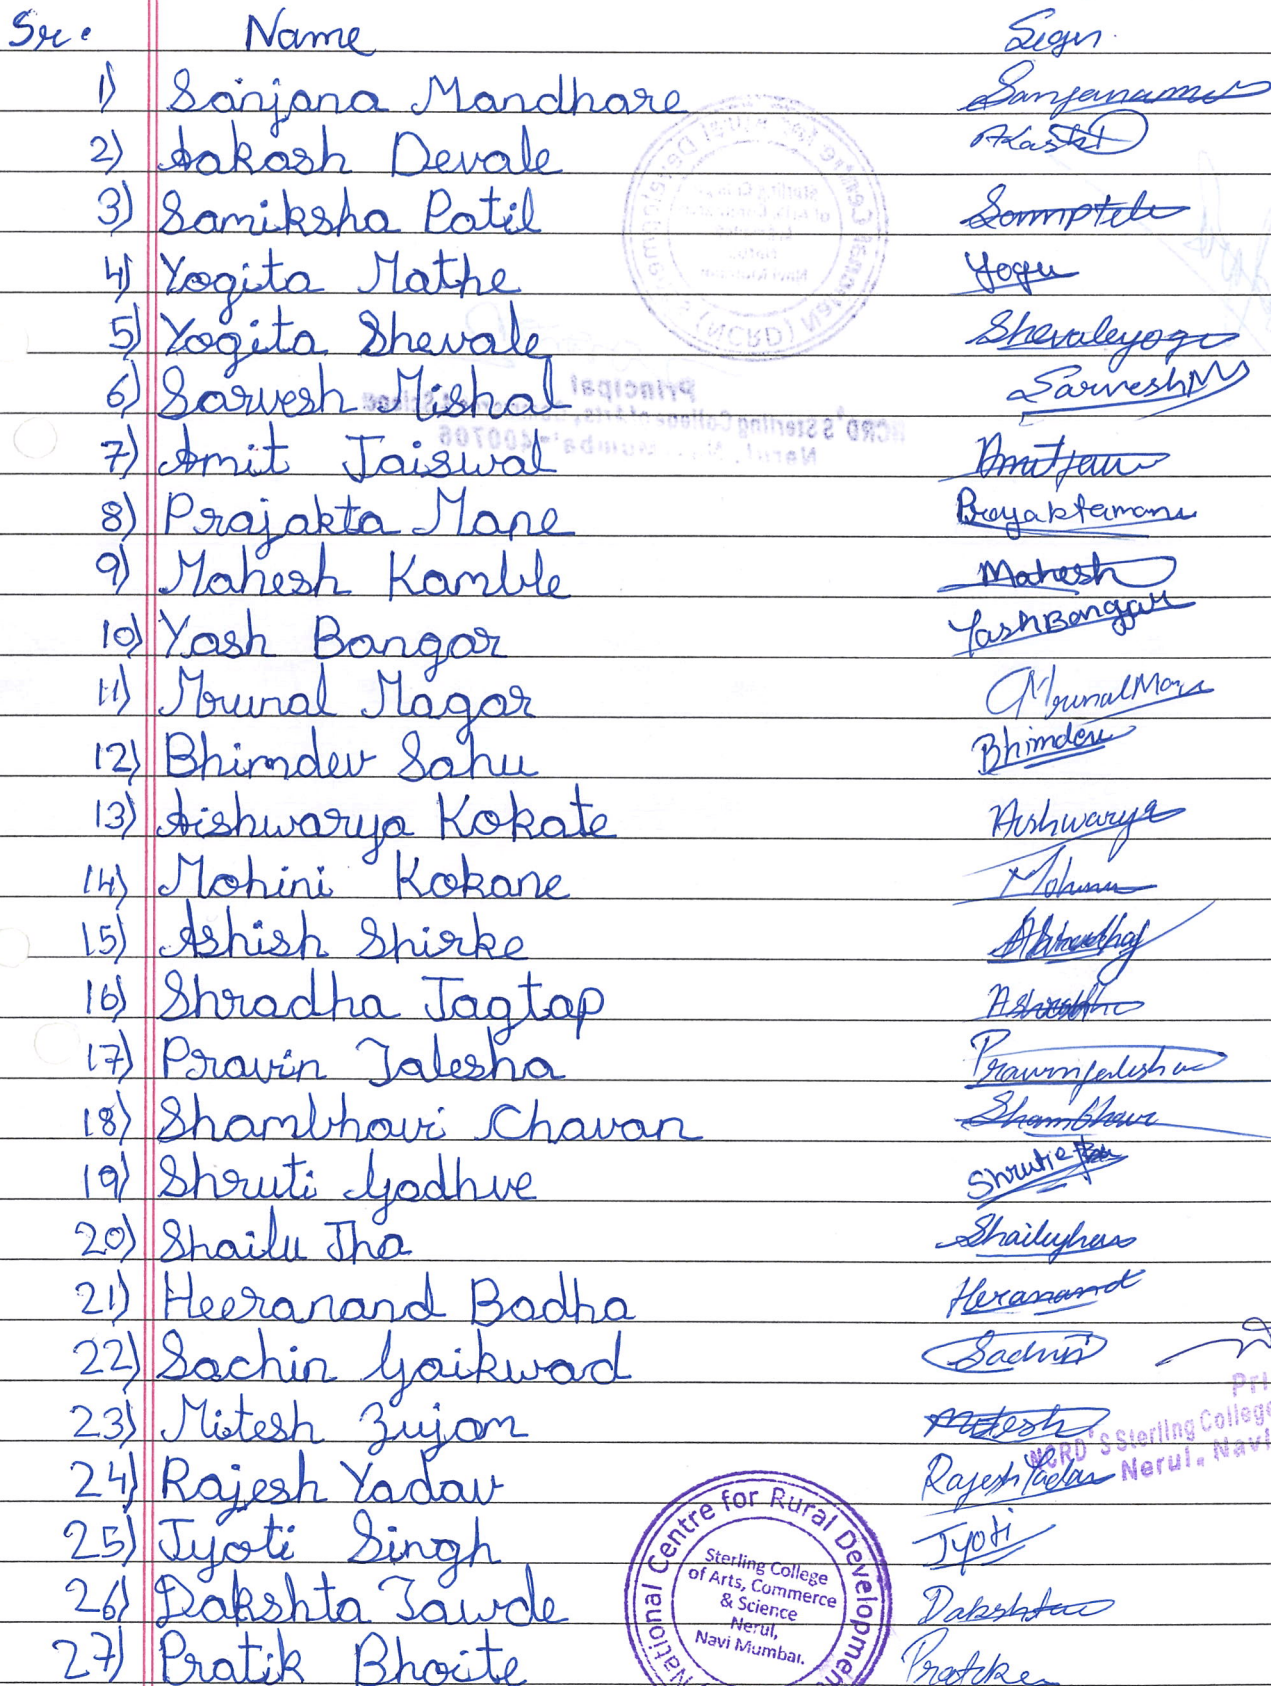 Sr. Name Sign
1) Sanjana Mandhare
2) Aakash Devale Akash
3) Samiksha Patil
4) Yogita Mathe
5) Yogita Shevale Shevaleyogi
6) Sarvesh Mishal SarveshM
7) Amit Jaiswal
8) Prajakta Mane Prajaktamane
9) Mahesh Kamble Mahesh
10) Yash Bangar YashBangar
11) Mrunal Magar
12) Bhimdev Sahu Bhimdev
13) Aishwarya Kokate Aishwarya
14) Mohini Kokane Mohini
15) Ashish Shirke
16) Shradha Jagtap
17) Pravin Jalesha Pravinjalesha
18) Shambhavi Chavan Shambhavi
19) Shruti Gadhve Shruti
20) Shailu Jha
21) Heeranand Badha Heranand
22) Sachin Gaikwad Sachin
23) Mitesh Zujam Mitesh
24) Rajesh Yadav Rajesh Yadav
25) Jyoti Singh Jyoti
26) Dakshta Tawde Dakshta
27) Pratik Bhoite
NCRD'S Sterling College
Nerul, Navi
National Centre for Rural Development
Sterling College
of Arts, Commerce
& Science
Nerul,
Navi Mumbai.